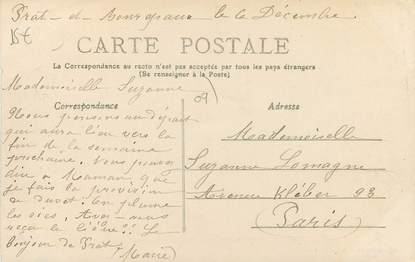 Prat-et-Bonrepaux le 6 Décembre
15€
CARTE POSTALE
La Correspondance au recto n'est pas acceptée par tous les pays étrangers
(Se renseigner à la Poste)
Mademoiselle Suzanne
Correspondance
09
Adresse
Nous pensons au départ
qui aura lieu vers la
fin de la semaine
prochaine. Vous pouvez
dire à Maman que
je fais la provision
de duvet. On plume
les oies. Avez-vous
reçu le lièvre?? Le
Bonjour de Prat
(Marie)
Mademoiselle
Suzanne Lomagne
Avenue Kléber 93
(Paris)